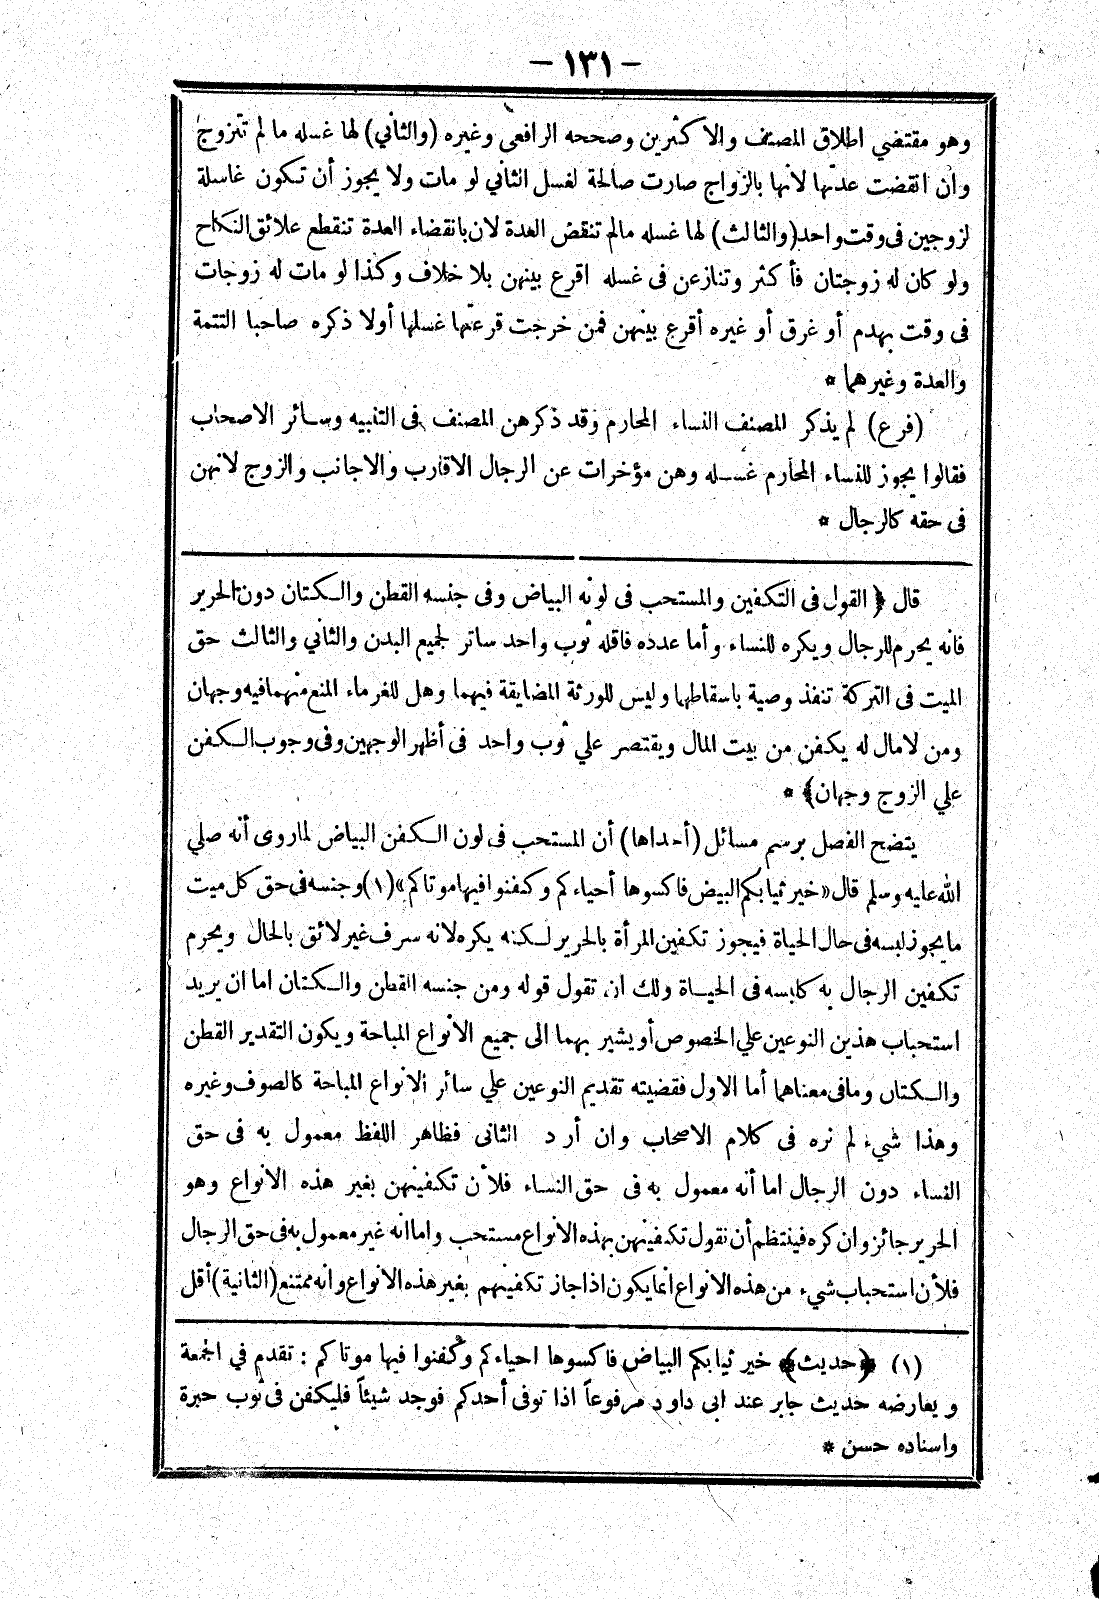 - ١٣١ -
وهو مقتضي اطلاق المصنف والاكثرين وصححه الرافعى وغيره (والثاني) لها غسله ما لم تتزوج
وان انقضت عدتها لانها بالزواج صارت صالحة لغسل الثاني لو مات ولا يجوز أن تكون غاسلة
لزوجين فى وقت واحد (والثالث) لها غسله مالم تنقض العدة لان بانقضاء العدة تنقطع علائق النكاح
ولو كان له زوجتان فأكثر وتنازعن فى غسله اقرع بينهن بلا خلاف وكذا لو مات له زوجات
فى وقت بهدم أو غرق أو غيره أقرع بينهن فمن خرجت قرعتها غسلها أولا ذكره صاحبا التتمة
والعدة وغيرهما *
(فرع) لم يذكر المصنف النساء المحارم وقد ذكرهن المصنف فى التنبيه وسائر الاصحاب
فقالوا يجوز للنساء المحارم غسله وهن مؤخرات عن الرجال الاقارب والاجانب والزوج لانهن
فى حقه كالرجال *
قال ﴿ القول فى التكفين والمستحب فى لونه البياض وفى جنسه القطن والكتان دون الحرير
فانه يحرم للرجال ويكره للنساء وأما عدده فاقله ثوب واحد ساتر لجميع البدن والثاني والثالث حق
الميت فى التركة تنفذ وصية باسقاطها وليس للورثة المضايقة فيهما وهل للغرماء المنع منهما فيه وجهان
ومن لامال له يكفن من بيت المال ويقتصر علي ثوب واحد فى أظهر الوجهين وفى وجوب الكفن
علي الزوج وجهان﴾ *
يتضح الفصل برسم مسائل (أحداها) أن المستحب فى لون الكفن البياض لماروى أنه صلي
الله عليه وسلم قال «خير ثيابكم البيض فاكسوها أحياءكم وكفنوا فيها موتاكم» (١) وجنسه فى حق كل ميت
ما يجوز لبسه فى حال الحياة فيجوز تكفين المرأة بالحرير لكنه يكره لانه سرف غير لائق بالحال ويحرم
تكفين الرجال به كلبسه فى الحياة ولك ان تقول قوله ومن جنسه القطن والكتان اما ان يريد
استحباب هذين النوعين علي الخصوص أو يشير بهما الى جميع الانواع المباحة ويكون التقدير القطن
والكتان ومافى معناهما أما الاول فقضيته تقديم النوعين علي سائر الانواع المباحة كالصوف وغيره
وهذا شيء لم نره فى كلام الاصحاب وان أر د الثانى فظاهر اللفظ معمول به فى حق
النساء دون الرجال اما أنه معمول به فى حق النساء فلأن تكفينهن بغير هذه الانواع وهو
الحرير جائز وان كره فينتظم أن نقول تكفينهن بهذه الانواع مستحب واما انه غير معمول به فى حق الرجال
فلأن استحباب شيء من هذه الانواع انما يكون اذا جاز تكفينهم بغير هذه الانواع وانه ممتنع (الثانية) أقل
(١) ﴿حديث﴾ خير ثيابكم البياض فاكسوها احياءكم وكفنوا فيها موتاكم : تقدم في الجمعة
ويعارضه حديث جابر عند ابى داود مرفوعاً اذا توفى أحدكم فوجد شيئاً فليكفن فى ثوب حبرة
واسناده حسن *